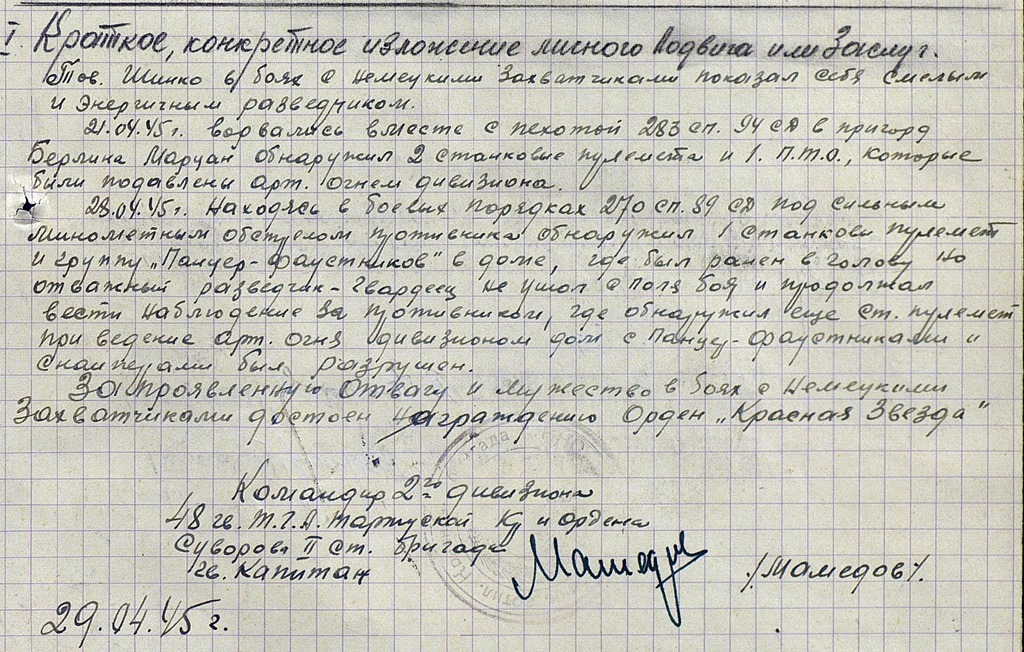 I. Краткое, конкретное изложение личного Подвига или Заслуг.
Тов. Шинко в боях с Немецкими Захватчиками показал себя смелым
и Энергичным разведчиком.
21.04.45г. ворвались вместе с пехотой 283 сп. 94 сд в пригорд
Берлина Марцан обнаружил 2 станковые пулемета и 1. П.Т.О., которые
были подавлены арт. огнем дивизиона.
28.04.45г. Находясь в боевых порядках 270 сп. 89 сд под сильным
минометным обстрелом противника обнаружил 1 станкови пулемет
и группу „Панцер-фаустников" в доме, где был ранен в голову но
отважный разведчик-Гвардеец не ушол с поля боя и продолжал
вести наблюдение за противником, где обнаружил еще ст. пулемет
при ведение арт. огня дивизионом дом с Панцер-фаустниками и
снайперами был разрушен.
За проявленную Отвагу и мужество в боях с Немецкими
Захватчиками достоен Награждению Орден „Красная Звезда"
Командир 2го дивизиона
48 гв. Т.Г.А. Тартуской и ордена
Суворова II ст. бригада
гв. Капитан
/Мамедов/.
29.04.45г.